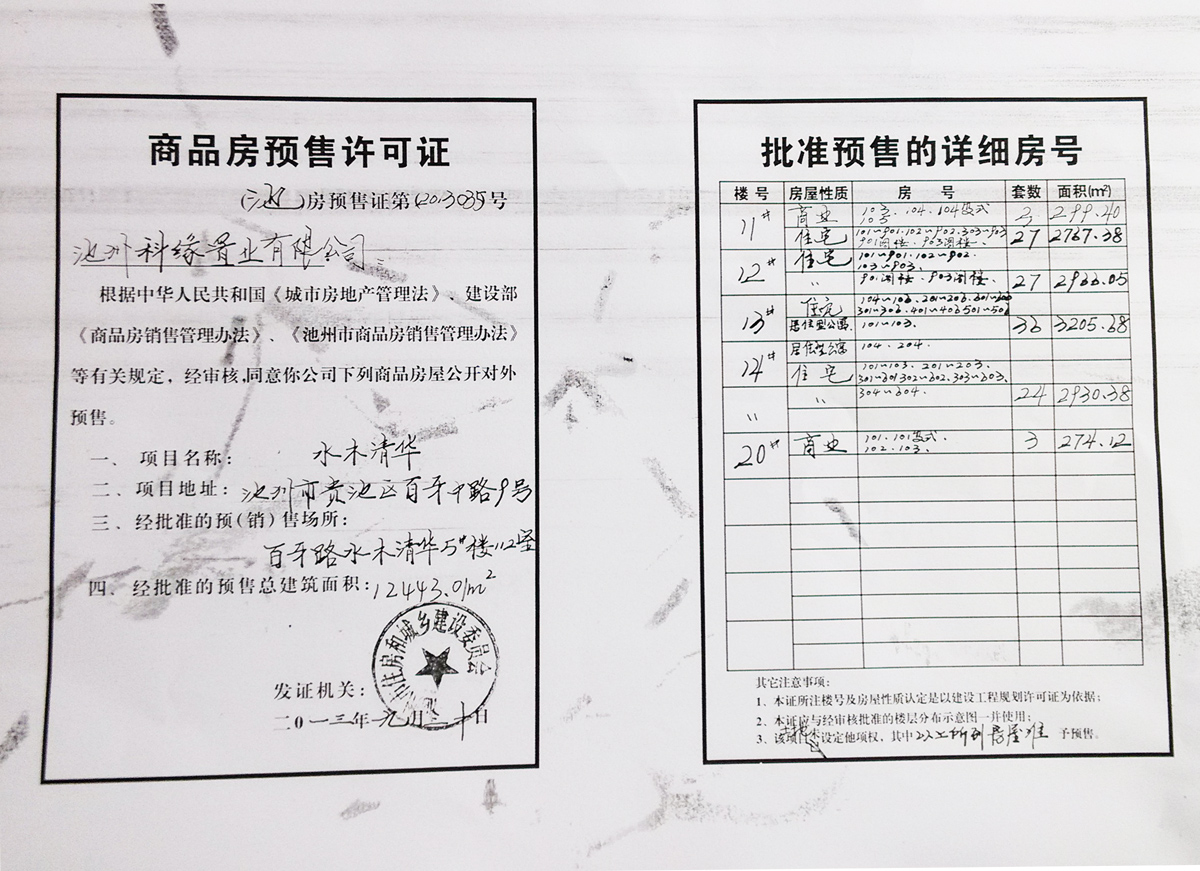 商品房预售许可证
(池)房预售证第(2013)035号
池州科缘置业有限公司:
根据中华人民共和国《城市房地产管理法》、建设部
《商品房销售管理办法》、《池州市商品房销售管理办法》
等有关规定，经审核,同意你公司下列商品房屋公开对外
预售。
一、项目名称: 水木清华
二、项目地址: 池州市贵池区百牙中路9号
三、经批准的预(销)售场所:
百牙路水木清华5#楼112室
四、经批准的预售总建筑面积:12443.01m²
市住房和城乡建设委员会
发证机关:
二0一三年九月二十日
批准预售的详细房号
楼号 房屋性质 房号 套数 面积(m²)
11# 商业 103、104、104跃式 105 3 299.40
住宅 101~901.102~902.303~903 901阁楼、903阁楼、 27 2767.38
12# 住宅 101~901.102~902. 103~903.
〃 901阁楼、903阁楼、 27 2966.05
13# 住宅 104~106.201~206.301~306.401~406.501~506
居住型公寓 101~103. 36 3205.68
14# 居住型公寓 104、204.
住宅 101~103、201~203. 301~601302~602.303~603.
〃 〃 304~604. 24 2930.38
20# 商业 101、101跃式、 102、103、 3 274.12
其它注意事项:
1、本证所注楼号及房屋性质认定是以建设工程规划许可证为依据;
2、本证应与经审核批准的楼层分布示意图一并使用;
3、该项目未设定他项权，其中以上所列房屋准予预售。